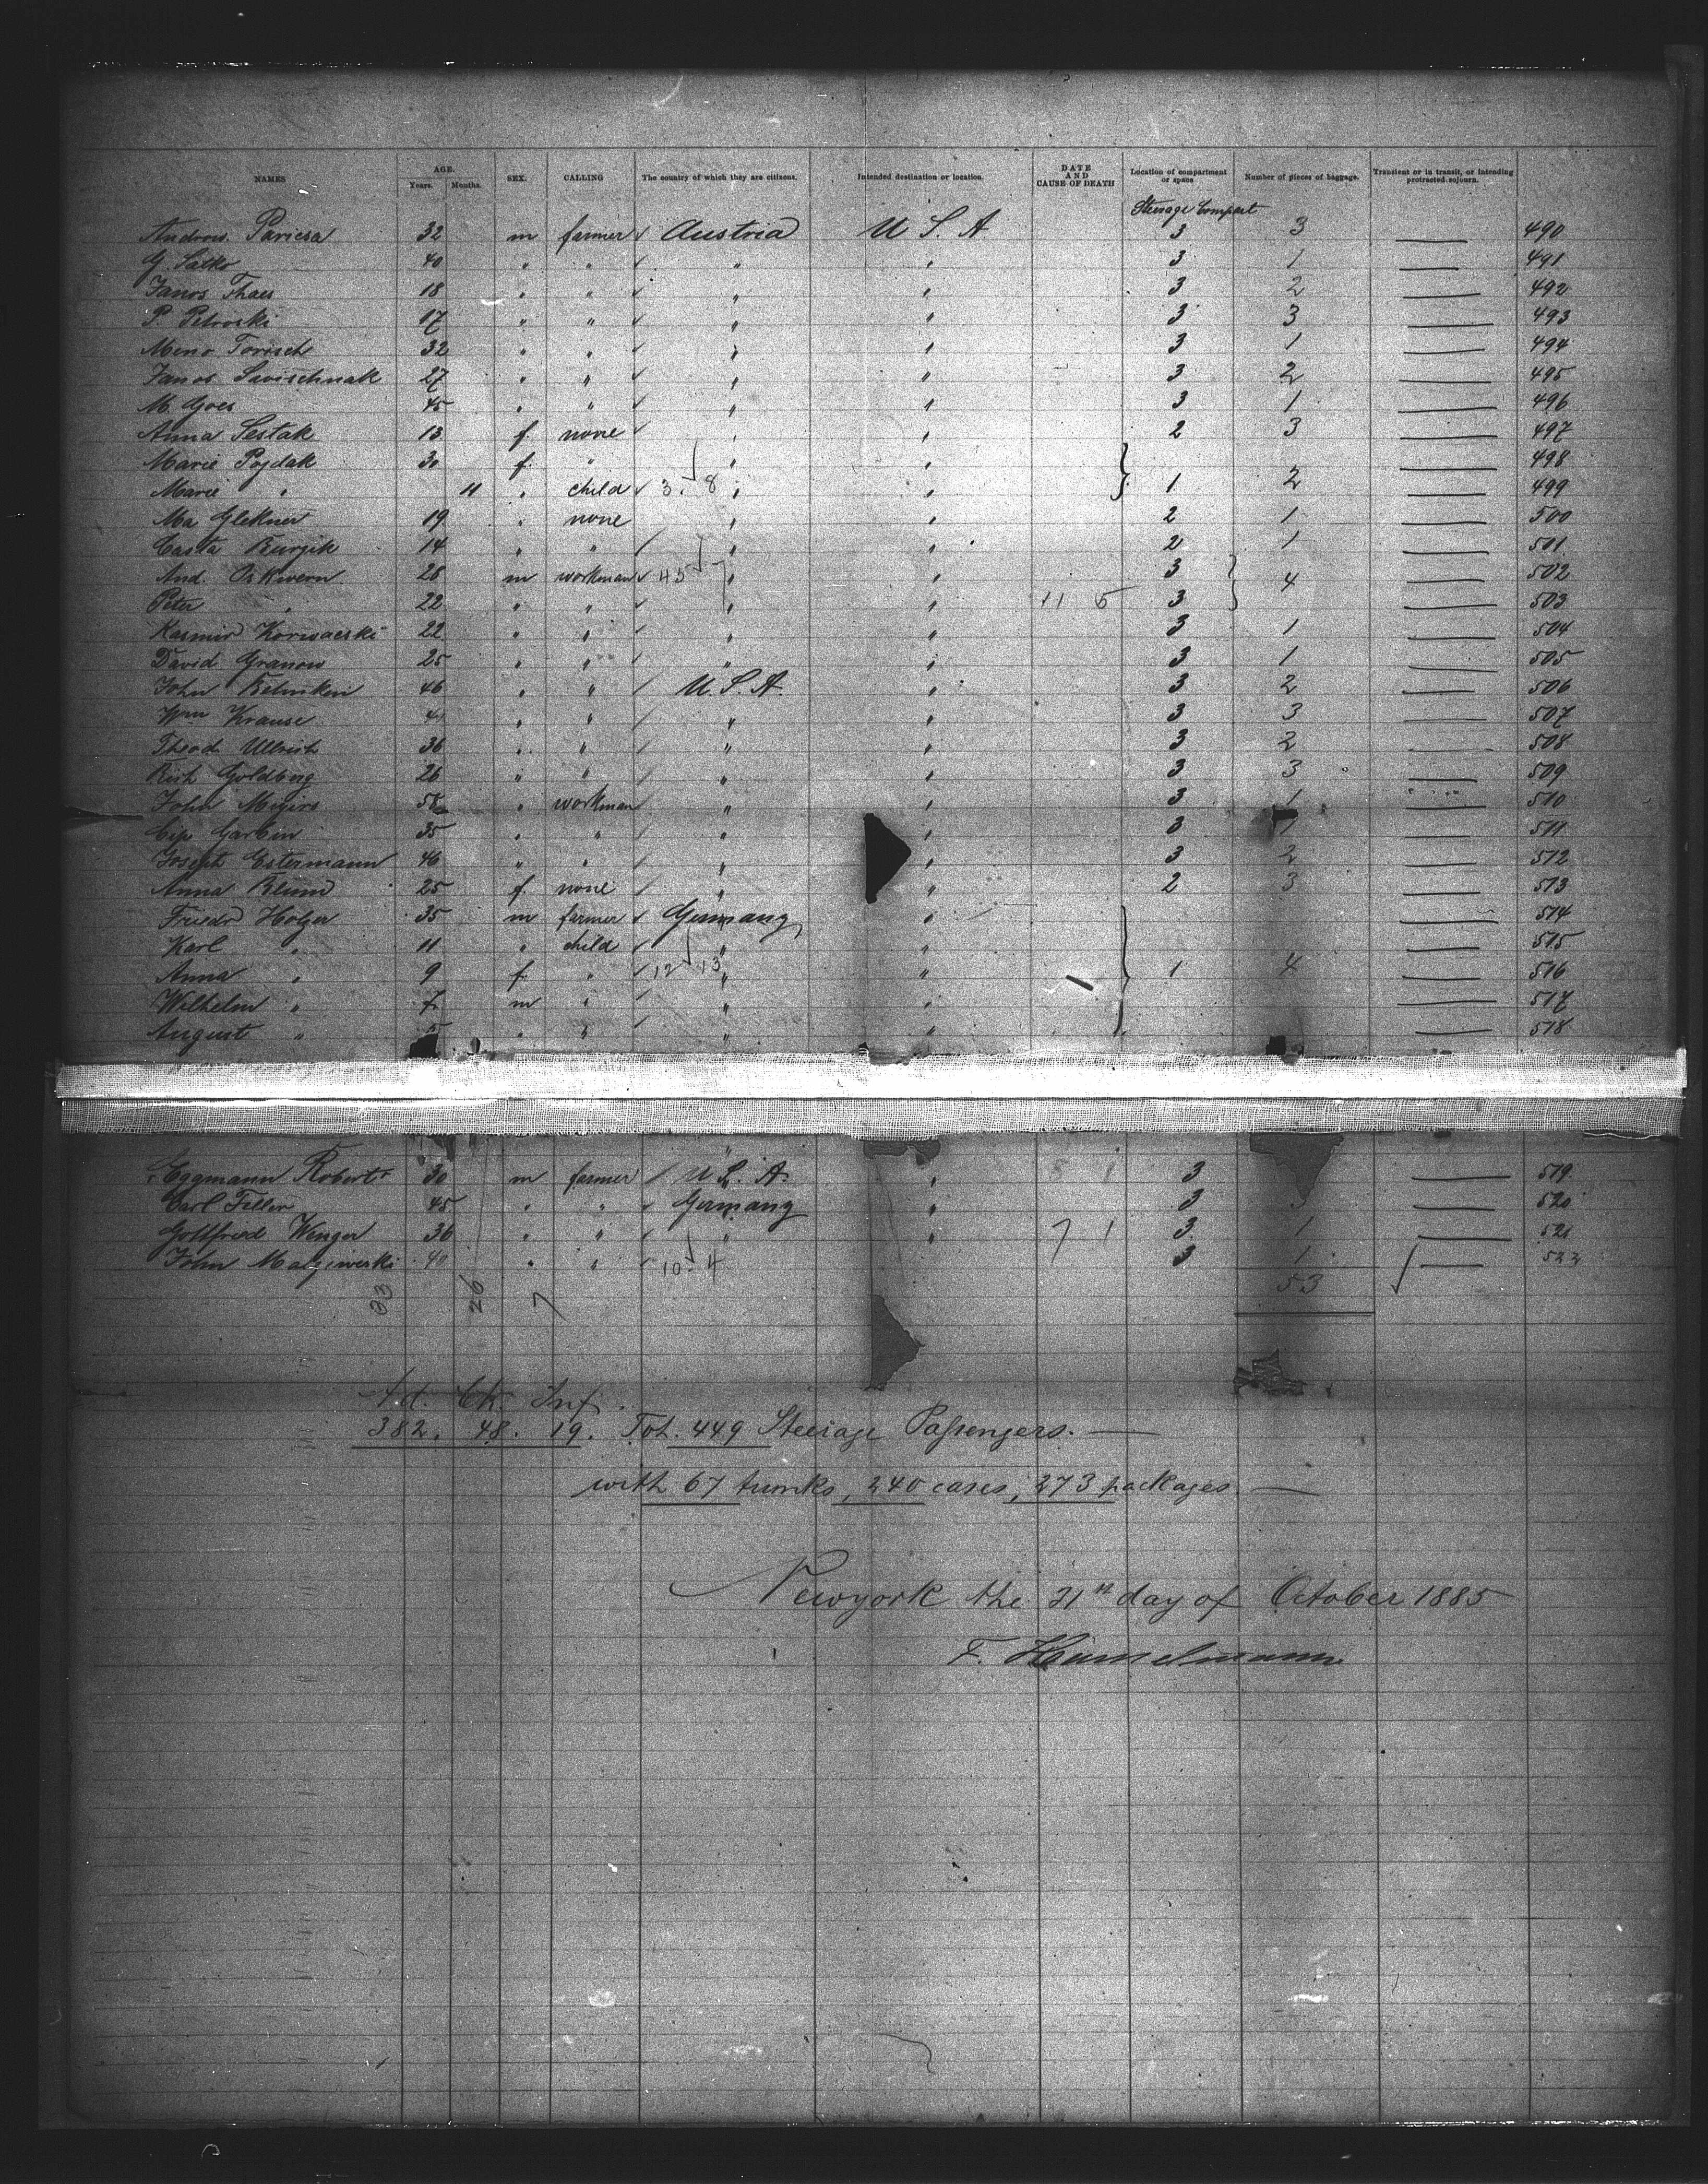 NAMES AGE. Years. Months. SEX. CALLING The country of which they are citizens. Intended destination or location. DATE AND CAUSE OF DEATH Location of compartment or space Number of pieces of baggage. Transient or in transit, or intending protracted sojourn.
Steerage Compart
32 m farmer Austria U S. A 3 3 490
G. Salko 40 " " " " 3 1 491
Janos Thaes 18 " " " " 3 2 492
P. Petroski 17 " " " " 3 3 493
Meno Torisch 32 " " " " 3 1 494
Janos Savischnak 27 " " " " 3 2 495
M. Goes 45 " " " " 3 1 496
Anna Sestak 13 f. none " " 2 3 497
Marie Pojdak 30 f. " " " 498
Marie " 11 " child 3. 8 " " 1 2 499
Ma Glekner 19 " none " " 2 1 500
Burzik 14 " " " " 2 1 501
And. Oskwern 28 m workman 43 7 " " 3 4 502
Peter " 22 " " " " 11 5 3 503
Kasmir 22 " " " " 3 1 504
David Granow 25 " " " " 3 1 505
John 46 " " U. S. A. " 3 2 506
Wm Krause " " " " 3 3 507
Theod Ullrich 36 " " " " 3 2 508
Rich Goldberg 26 " " " " 3 3 509
John Meyers 58 " workman " " 3 1 510
Garbin 35 " " " " 3 1 511
Joseph Estermann 46 " " " " 3 2 512
Anna Blum 25 f. none " " 2 3 513
Friedr Holzer 35 m farmer Germany " 514
Karl " 11 " child " " 515
Anna " 9 f. " 12 13 " " 1 4 516
Wilhelm " 7 m " " " 517
August " 5 " " " " 518
Eggmann Robert 30 m farmer U. S. A. " 3 1 3 519.
Carl Feller 45 " " Germany " 3 3 520
Gottfried Wenger 36 " " " " 7 1 3. 1 521
John 40 " " 10. 4 3 1 522
33 26 7 53
Ad. Ch. Inf.
382. 48. 19. Tot. 449 Steerage Passengers.
with 67 trunks, 240 cases, 273 packages.
Newyork the 21st day of October 1885